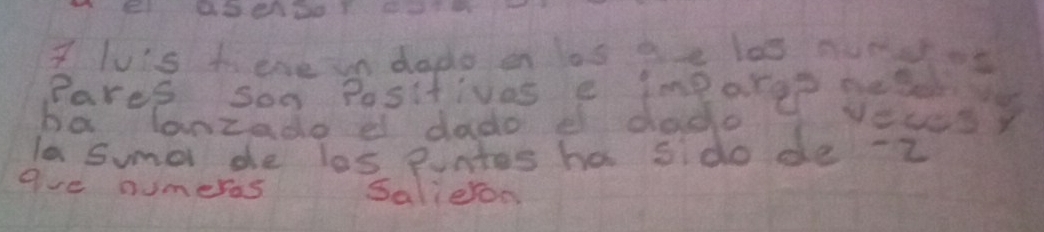 el asensor
7 luis tiene un dado en los que los numeros
Pares son Positivos e impares negativos
ha lanzado el dado el dado veces y
la suma de los puntos ha sido de -2
que numeros salieron